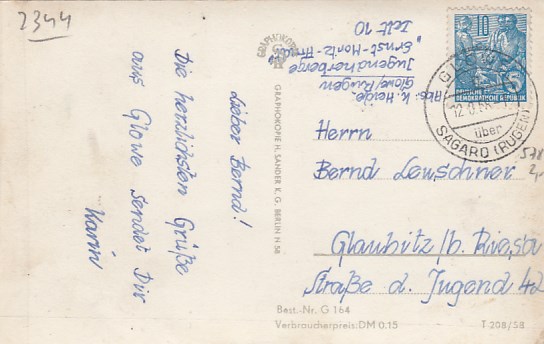 2344
Lieber Bernd!
Die herzlichsten Grüße
aus Glowe sendet Dir
Karin
GRAPHOKOPIE H. SANDER K. G. BERLIN N 58
Abs: K. Heide,
Glowe/Rügen
Jugendherberge
"Ernst-Moritz-Arndt"
Zelt 10
10
DEUTSCHE
DEMOKRATISCHE REPUBLIK
über
SAGARD (RÜGEN)
Herrn
Bernd Leuschner
Glaubitz/b. Riesa
Straße d. Jugend 42
578
2,-
Best.-Nr. G 164
Verbraucherpreis: DM 0.15
T 208/58